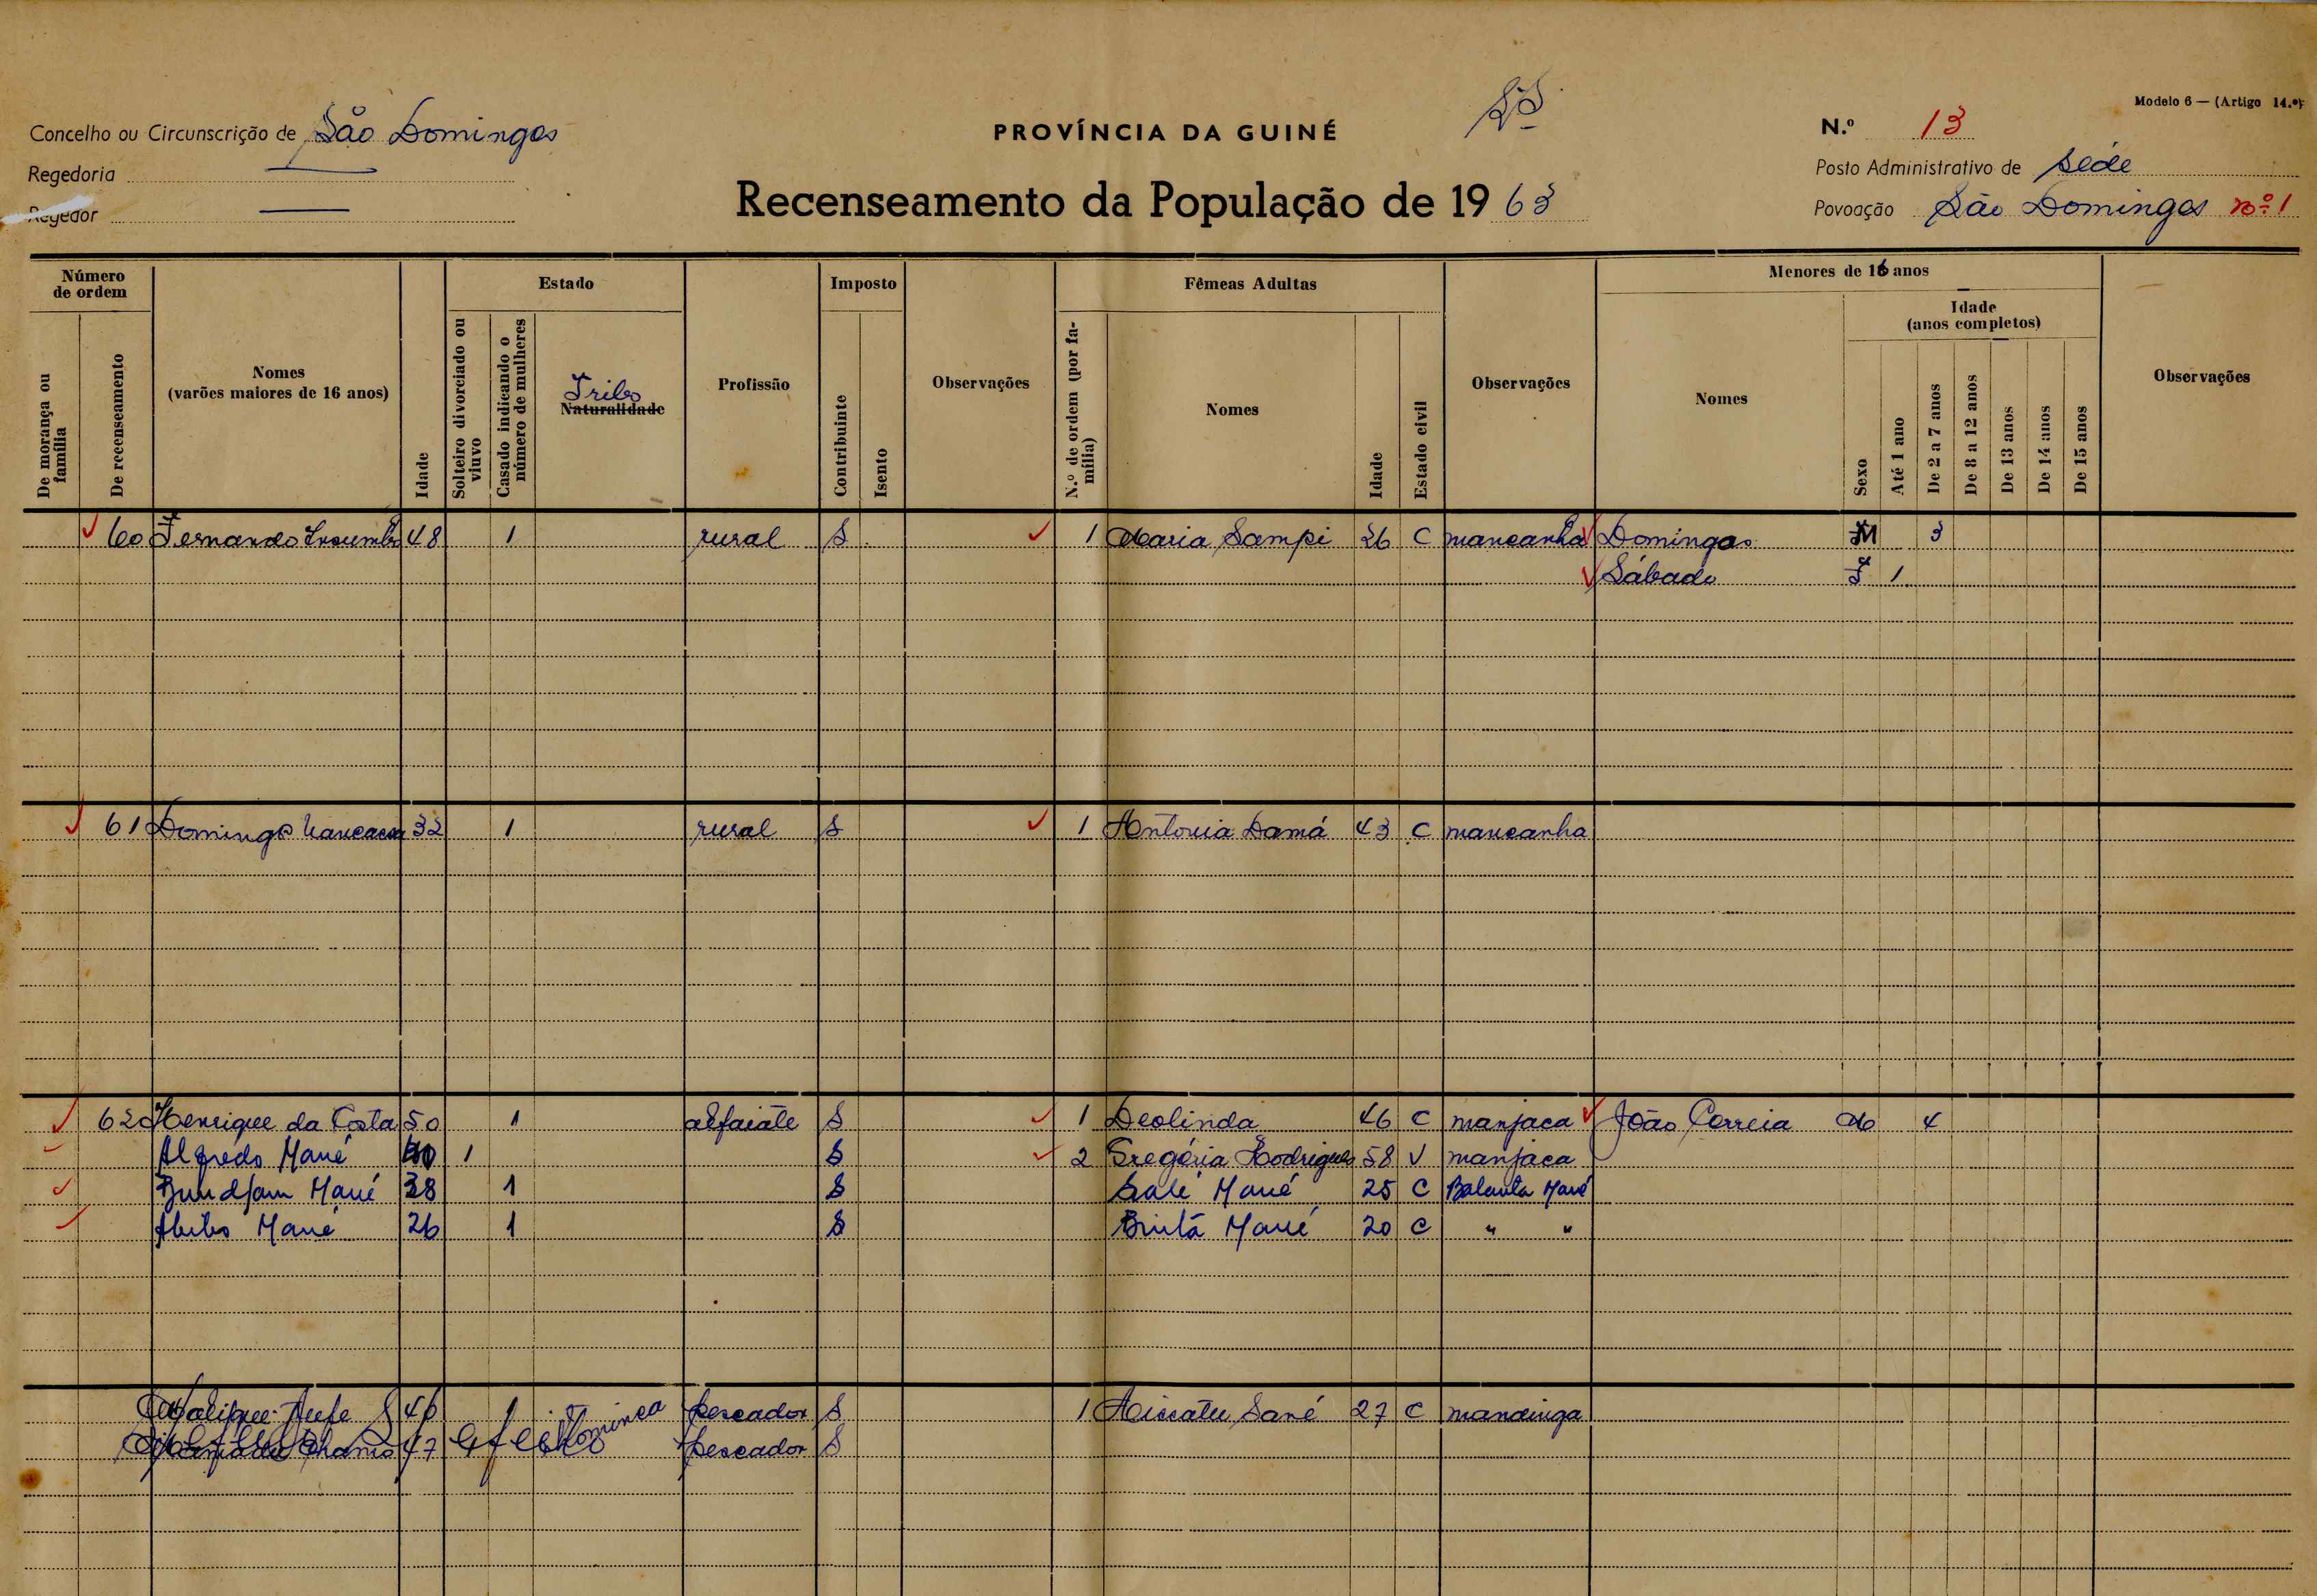 Modelo 6 — (Artigo 14.º)
Concelho ou Circunscrição de São Domingos
PROVÍNCIA DA GUINÉ
N.º 13
Regedoria —
Posto Administrativo de Séde
Regedor —
Recenseamento da População de 1963
Povoação São Domingos nº 1
Número de ordem
De morança ou família
De recenseamento
Nomes
(varões maiores de 16 anos)
Idade
Estado
Solteiro divorciado ou viuvo
Casado indicando o número de mulheres
Tribo
Naturalidade
Profissão
Imposto
Contribuinte
Isento
Observações
Fêmeas Adultas
N.º de ordem (por família)
Nomes
Idade
Estado civil
Observações
Menores de 16 anos
Nomes
Sexo
Idade
(anos completos)
Até 1 ano
De 2 a 7 anos
De 8 a 12 anos
De 13 anos
De 14 anos
De 15 anos
Observações
60 Fernando 48 1 rural S 1 Maria Sampi 26 C mancanha Domingas 3
Sábado F 1
61 Domingos 32 1 rural S 1 Antonia Damá 43 C mancanha
62 Henrique da Costa 50 1 alfaiate S 1 Deolinda 46 C manjaca João Correia M 4
Alfredo Mané 1 S 2 Gregória Rodrigues 58 V manjaca
Bundjam Mané 38 1 S Salé Mané 25 C Balanta Mané
Abibo Mané 26 1 S Bintã Mané 20 C " "
46 1 pescador S 1 Aissatu Sané 27 C mandinga
47 pescador S